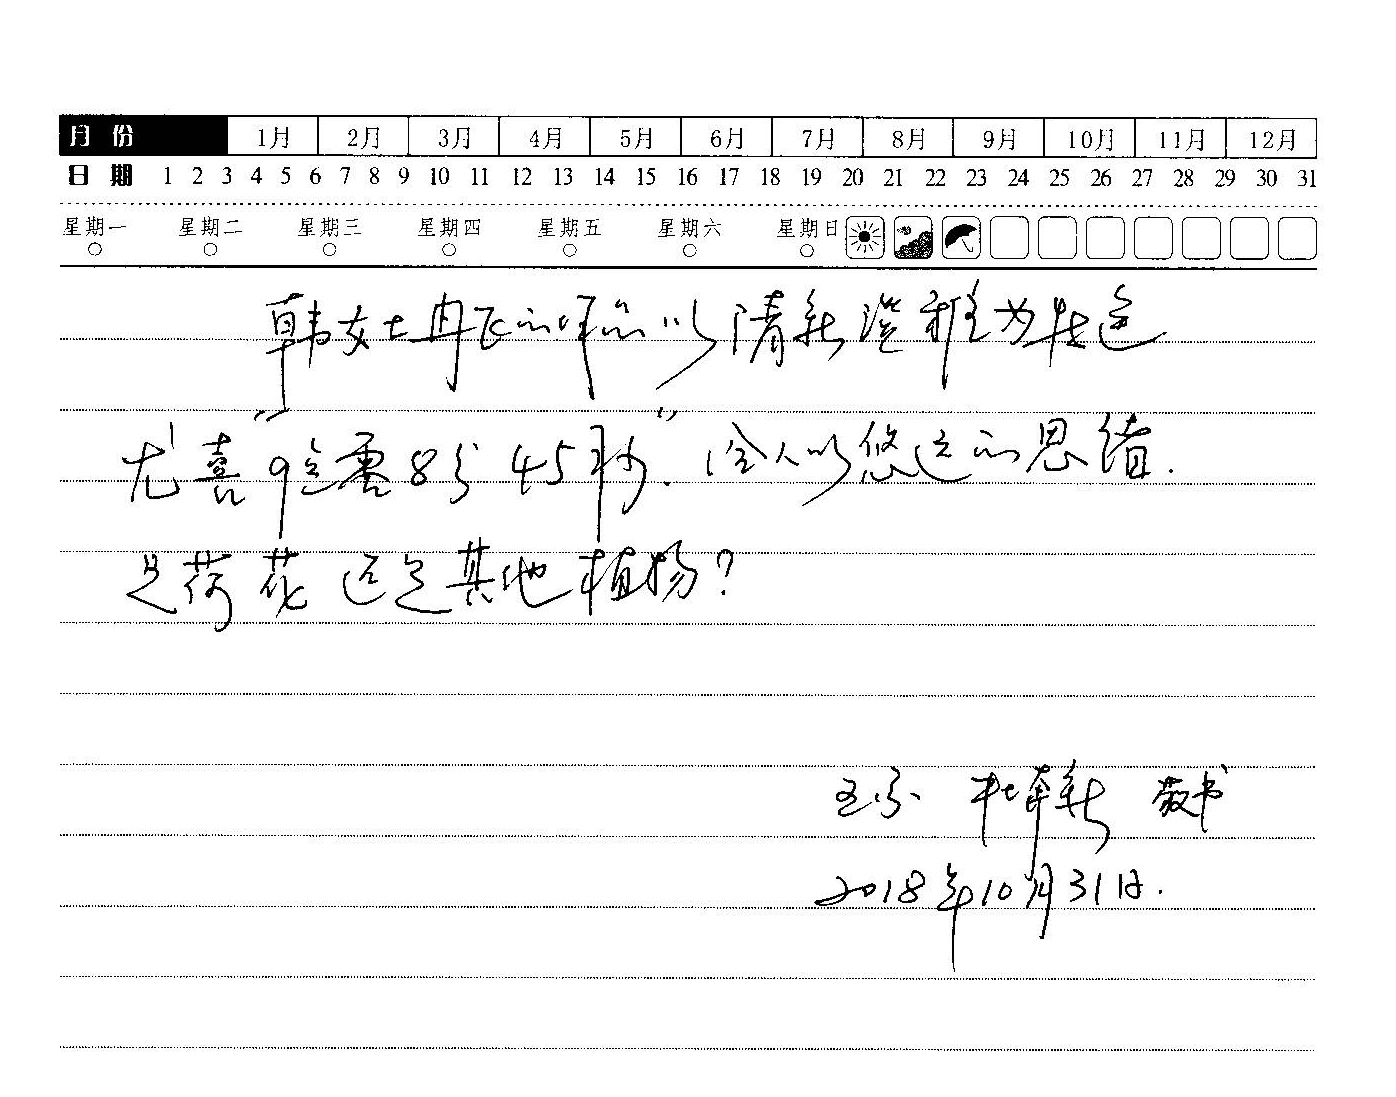 月份 1月 2月 3月 4月 5月 6月 7月 8月 9月 10月 11月 12月
日期 1 2 3 4 5 6 7 8 9 10 11 12 13 14 15 16 17 18 19 20 21 22 23 24 25 26 27 28 29 30 31
星期一 星期二 星期三 星期四 星期五 星期六 星期日
韩女士丹飞的作品以清新淡雅为特色
尤喜“9点零8分45秒”.给人以悠远的思绪.
是荷花还是其他植物?
杜奉新 敬书
2018年10月31日.